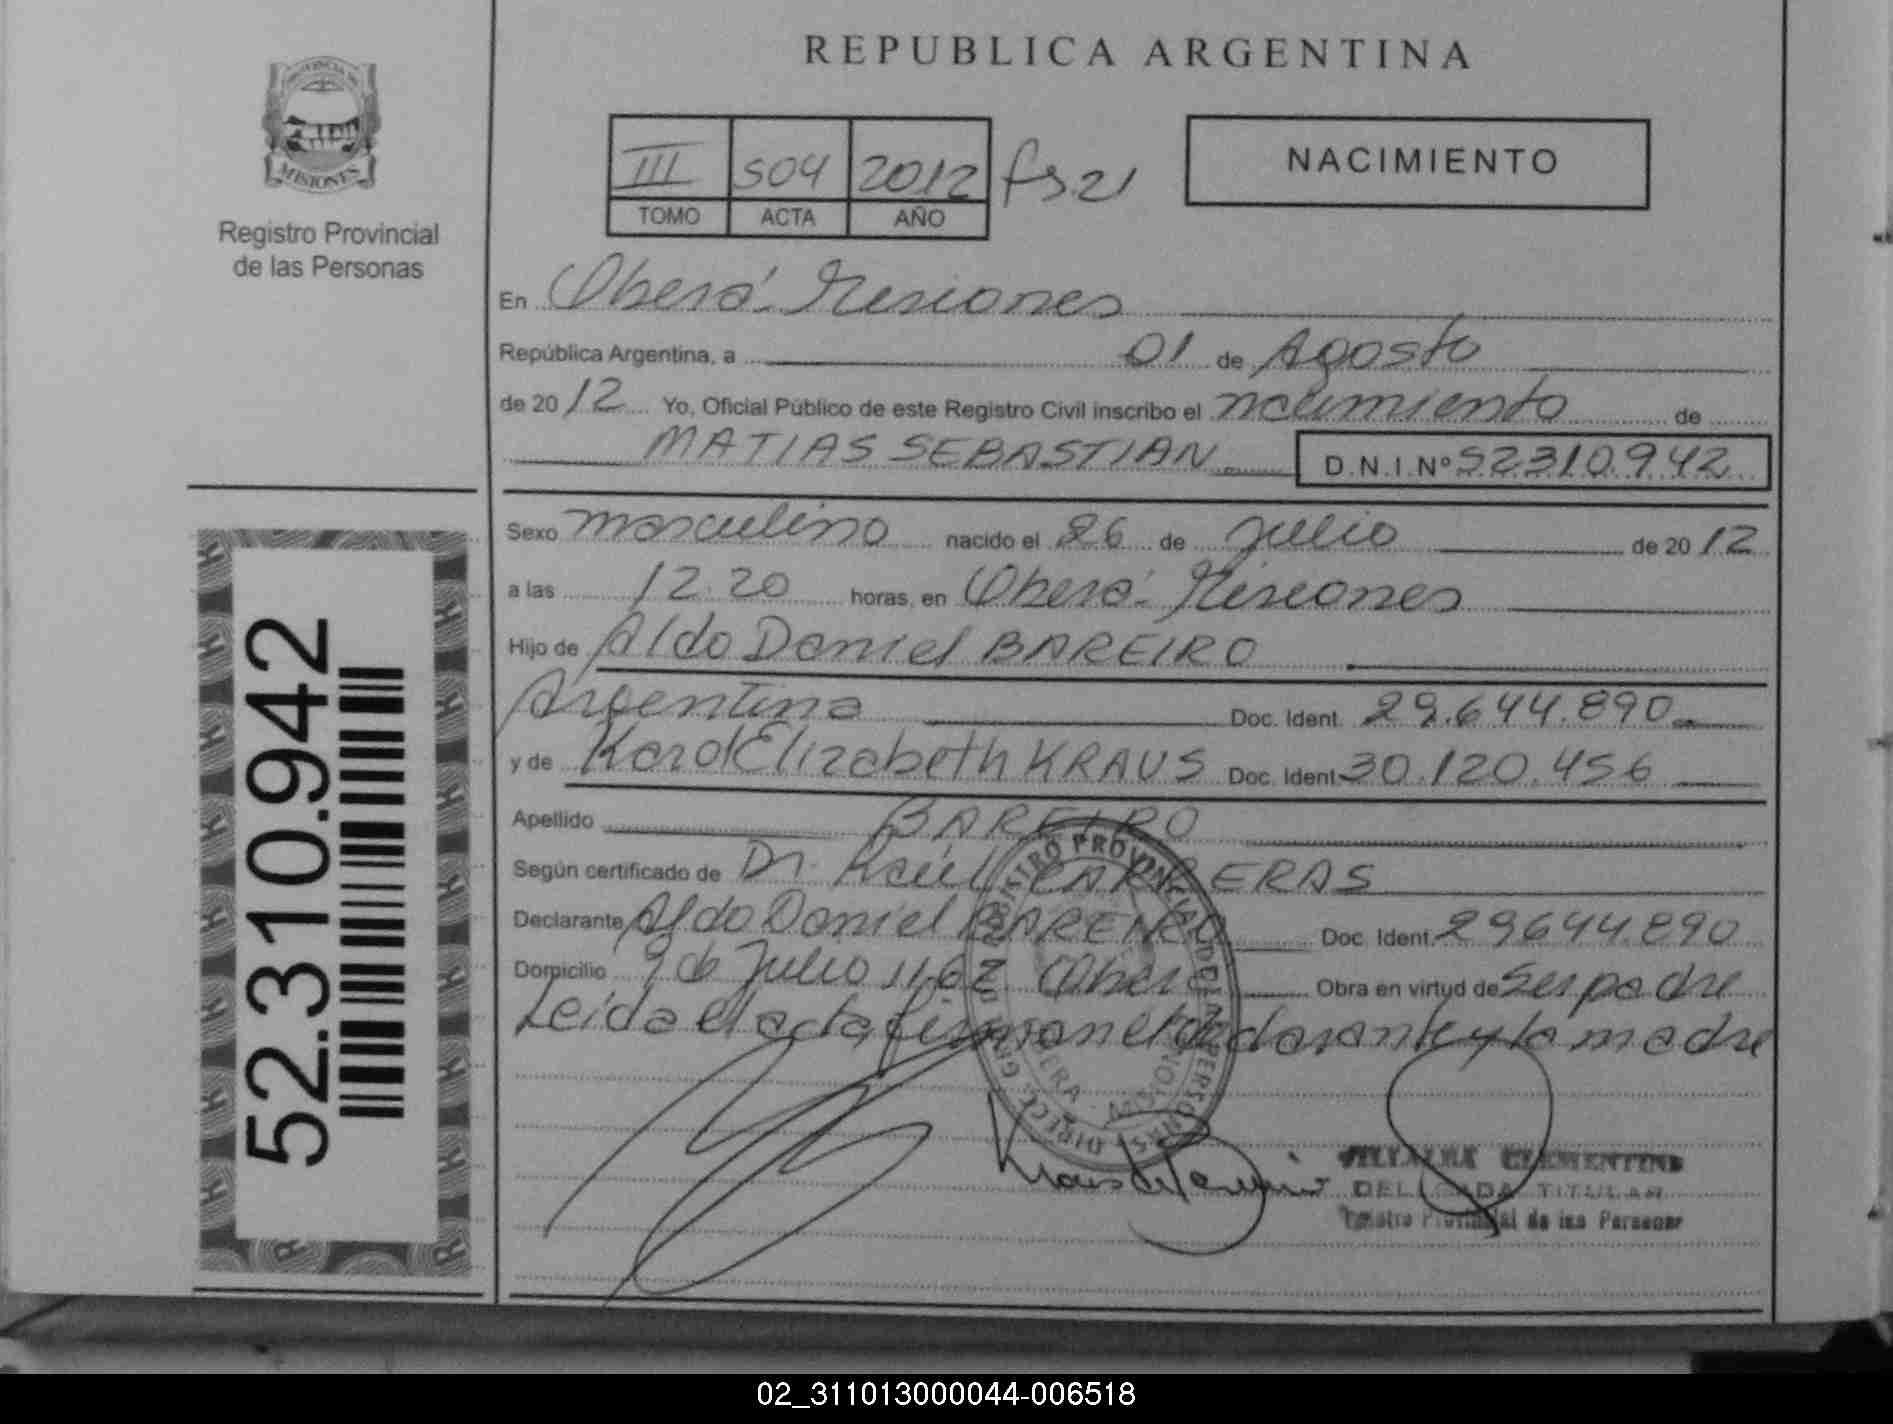 REPUBLICA ARGENTINA
PROVINCIA DE
MISIONES
Registro Provincial
de las Personas
III 504 2012 fs 21
TOMO ACTA AÑO
NACIMIENTO
En Oberá - Misiones
República Argentina, a 01 de Agosto
de 20 12 Yo, Oficial Público de este Registro Civil inscribo el nacimiento de
MATIAS SEBASTIAN D.N.I.Nº 52.310.942
Sexo masculino nacido el 26 de julio de 20 12
a las 12.20 horas, en Oberá - Misiones
Hijo de Aldo Daniel BAREIRO
Argentina Doc. Ident. 29.644.890
y de Karol Elizabeth KRAUS Doc. Ident. 30.120.456
Apellido BAREIRO
Según certificado de Dr. Raúl CARRERAS
Declarante Aldo Daniel BAREIRO Doc. Ident. 29.644.890
Domicilio 9 de Julio 1162 Oberá Obra en virtud de ser padre
Leida el acta, firman el declarante y la madre
52.310.942
VILLALBA CLEMENTINA
DELEGADA TITULAR
Registro Provincial de las Personas
02_311013000044-006518